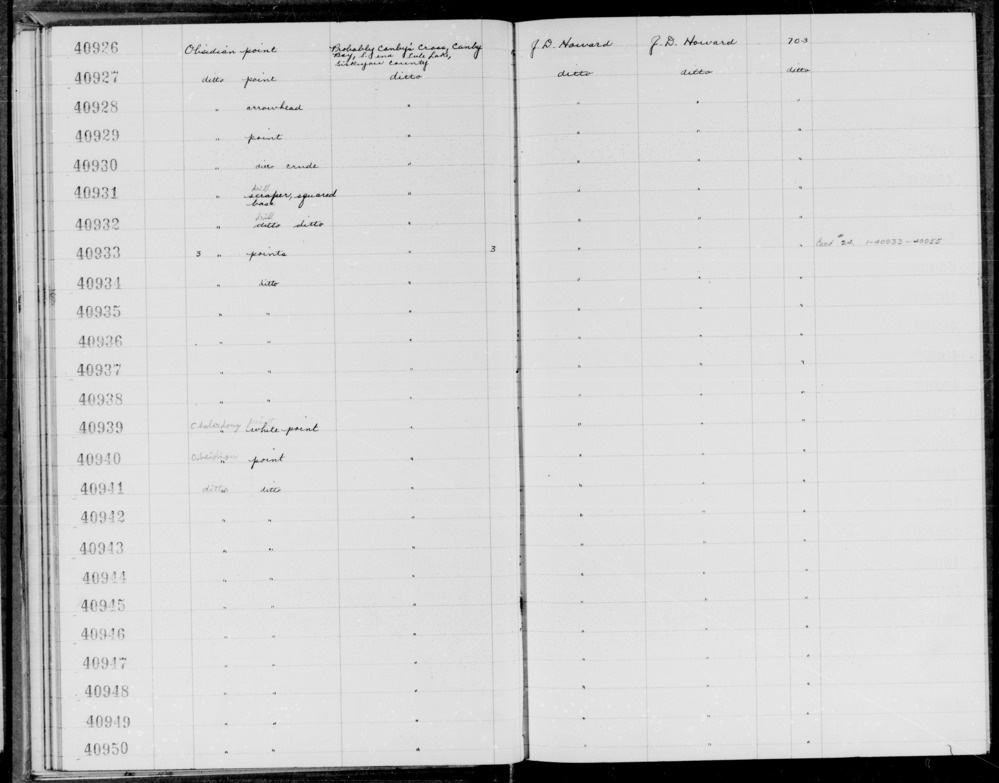 40926 Obsidian point Probably Canby's Cross, Canby J. D. Howard J. D. Howard 703
Bay, S. end Tule Lake,
Siskiyou County
40927 ditto point ditto ditto ditto ditto
40928 " arrowhead " " " "
40929 " point " " " "
40930 " ditto crude " " " "
drill
40931 " scraper, squared " " " "
base
drill
40932 " ditto ditto " " " "
40933 3 " points " 3 " " " Card # 24. 1-40933-40955
40934 " ditto " " " "
40935 " " " " " "
40936 " " " " " "
40937 " " " " " "
40938 " " " " " "
40939 Chalcedony " white point " " " "
40940 Obsidian " point " " " "
40941 ditto ditto " " " "
40942 " " " " " "
40943 " " " " " "
40944 " " " " " "
40945 " " " " " "
40946 " " " " " "
40947 " " " " " "
40948 " " " " " "
40949 " " " " " "
40950 " " " " " "